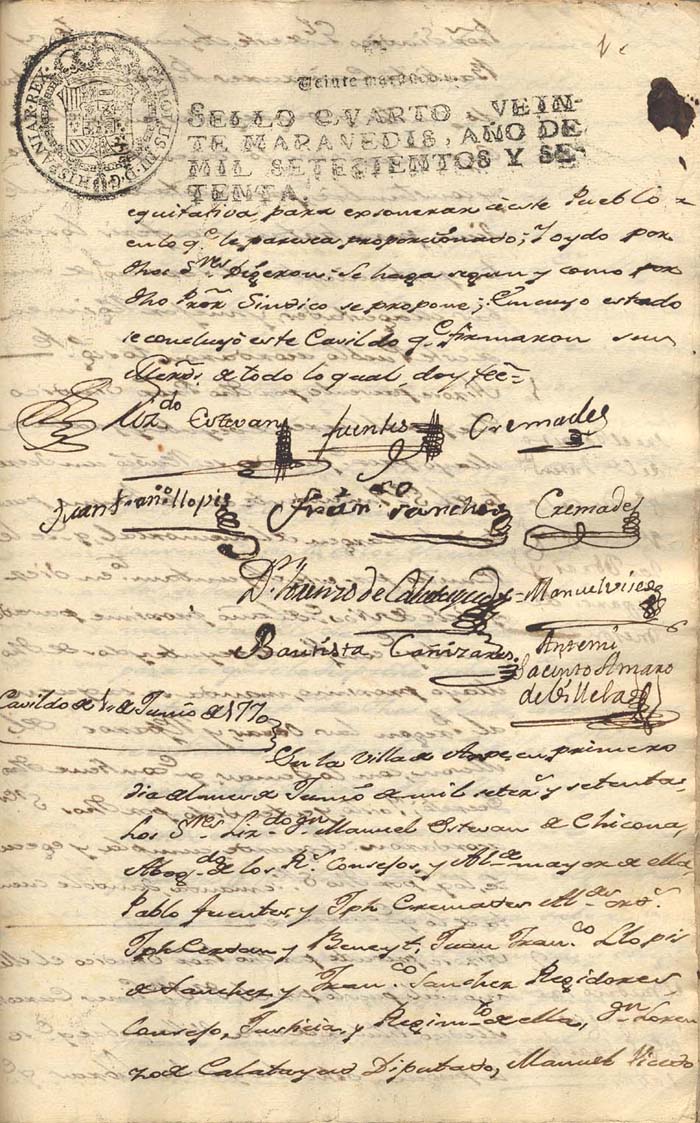 CAROLUS III D G HISPANIAR REX
Veinte maravedis.
SELLO QVARTO, VEIN-
TE MARAVEDIS, AÑO DE
MIL SETECIENTOS Y SE-
TENTA.
equitativa para exonerar à este Pueblo
en lo q.e le paresca proporcionado; Y oydo por
dhos S.res Dijeron: Se haga segun y como por
dho Pror. Sindico se propone; En cuyo estado
se concluyó este Cavildo q.e firmaron sus
Mercds. de todo lo qual, doy feè=
Liz.do Estevan fuentes Cremades
Juan Fran.co llopis Fran.co Sanchez Cremades
D.n Lorenzo de Calatayud Manuel Visedo
Bautista Cañizares Antemi
Jacinto Amaro
de Villela
Cavildo de 1.o de Junio de 1770
En la Villa de Aspe, en primero
dia del mes de Junio de mil setez.s y setenta:
Los S.res Liz.do D.n Manuel Estevan de Chicona,
Abog.do de los R.s Consejos, y Al.de mayor de ella,
Pablo fuentes, y Jph Cremades Al.des ord.s
Jph Cerdan y Beneyt, Juan Fran.co Llopis
de Sanchez, y Fran.co Sanchez Regidores
Consejo, Justicia, y Regim.to de ella, D.n Loren
zo de Calatayud Diputado, Manuel Vicedo